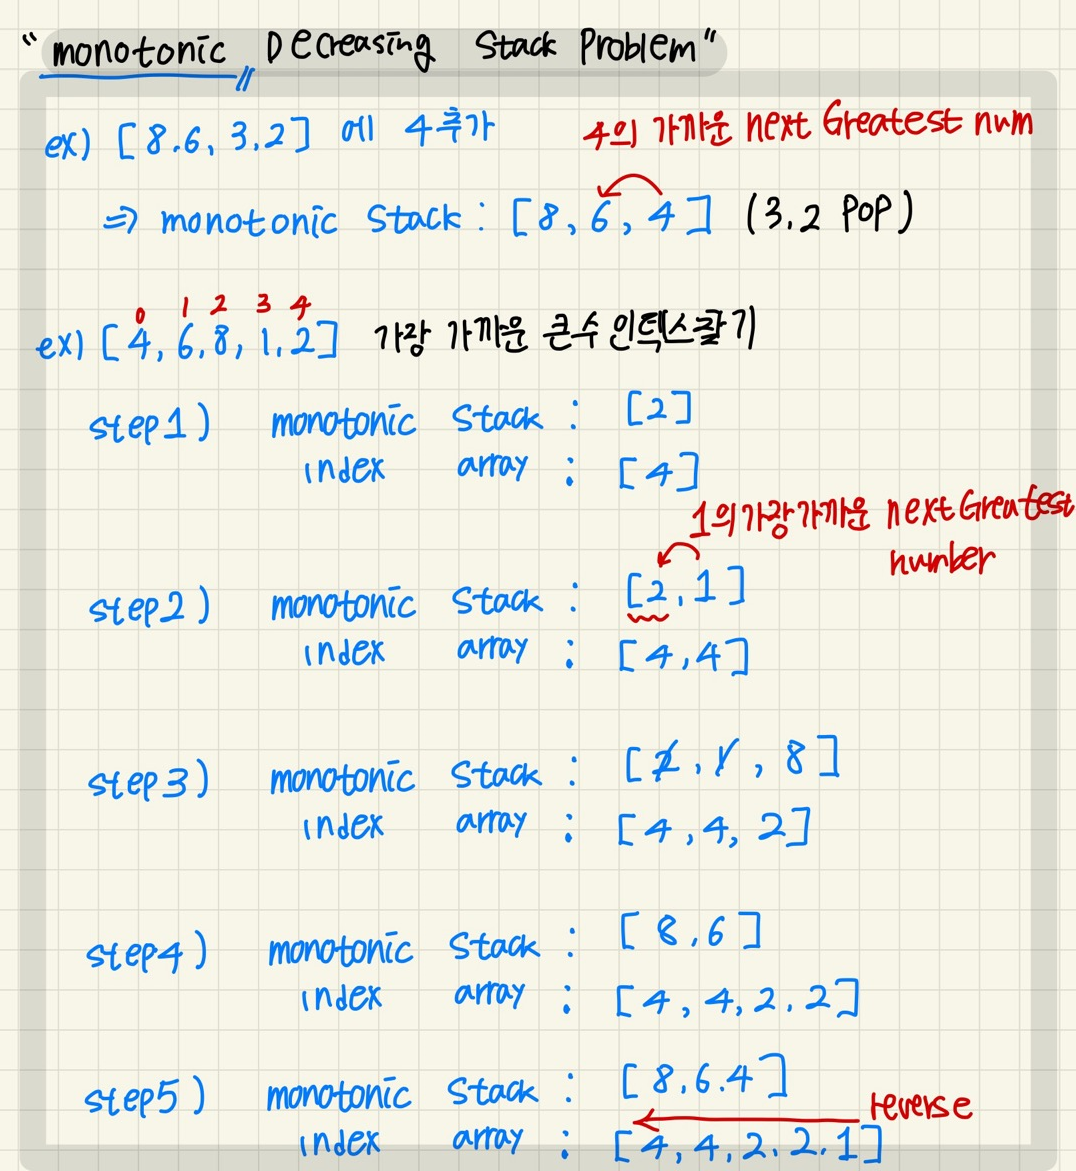 "monotonic Decreasing Stack Problem"
ex) [8.6, 3.2] 에 4추가
4의 가까운 next Greatest num
⇒ monotonic Stack : [8, 6, 4] (3.2 POP)
0 1 2 3 4
ex) [4, 6, 8, 1, 2] 가장 가까운 큰수 인덱스찾기
step1) monotonic Stack : [2]
index array : [4]
1의가장가까운 next Greatest
number
step2) monotonic Stack : [2, 1]
index array : [4, 4]
step3) monotonic Stack : [2, 1, 8]
index array : [4, 4, 2]
step4) monotonic Stack : [8, 6]
index array : [4, 4, 2, 2]
step5) monotonic Stack : [8, 6.4]
reverse
index array : [4, 4, 2, 2, 1]